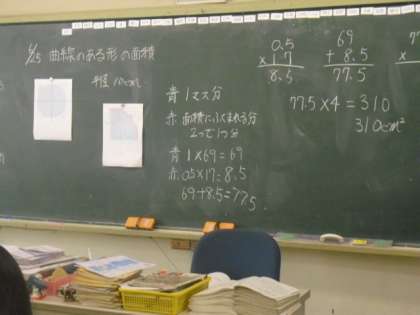 5/25 曲線のある形の面積
半径 10cm
青 1マス分
赤 面積にふくまれる分
2つで1つ分
青 1×69=69
赤 0.5×17=8.5
69+8.5=77.5
0.5
×17
8.5
69
+8.5
77.5
77.5×4=310
310cm²